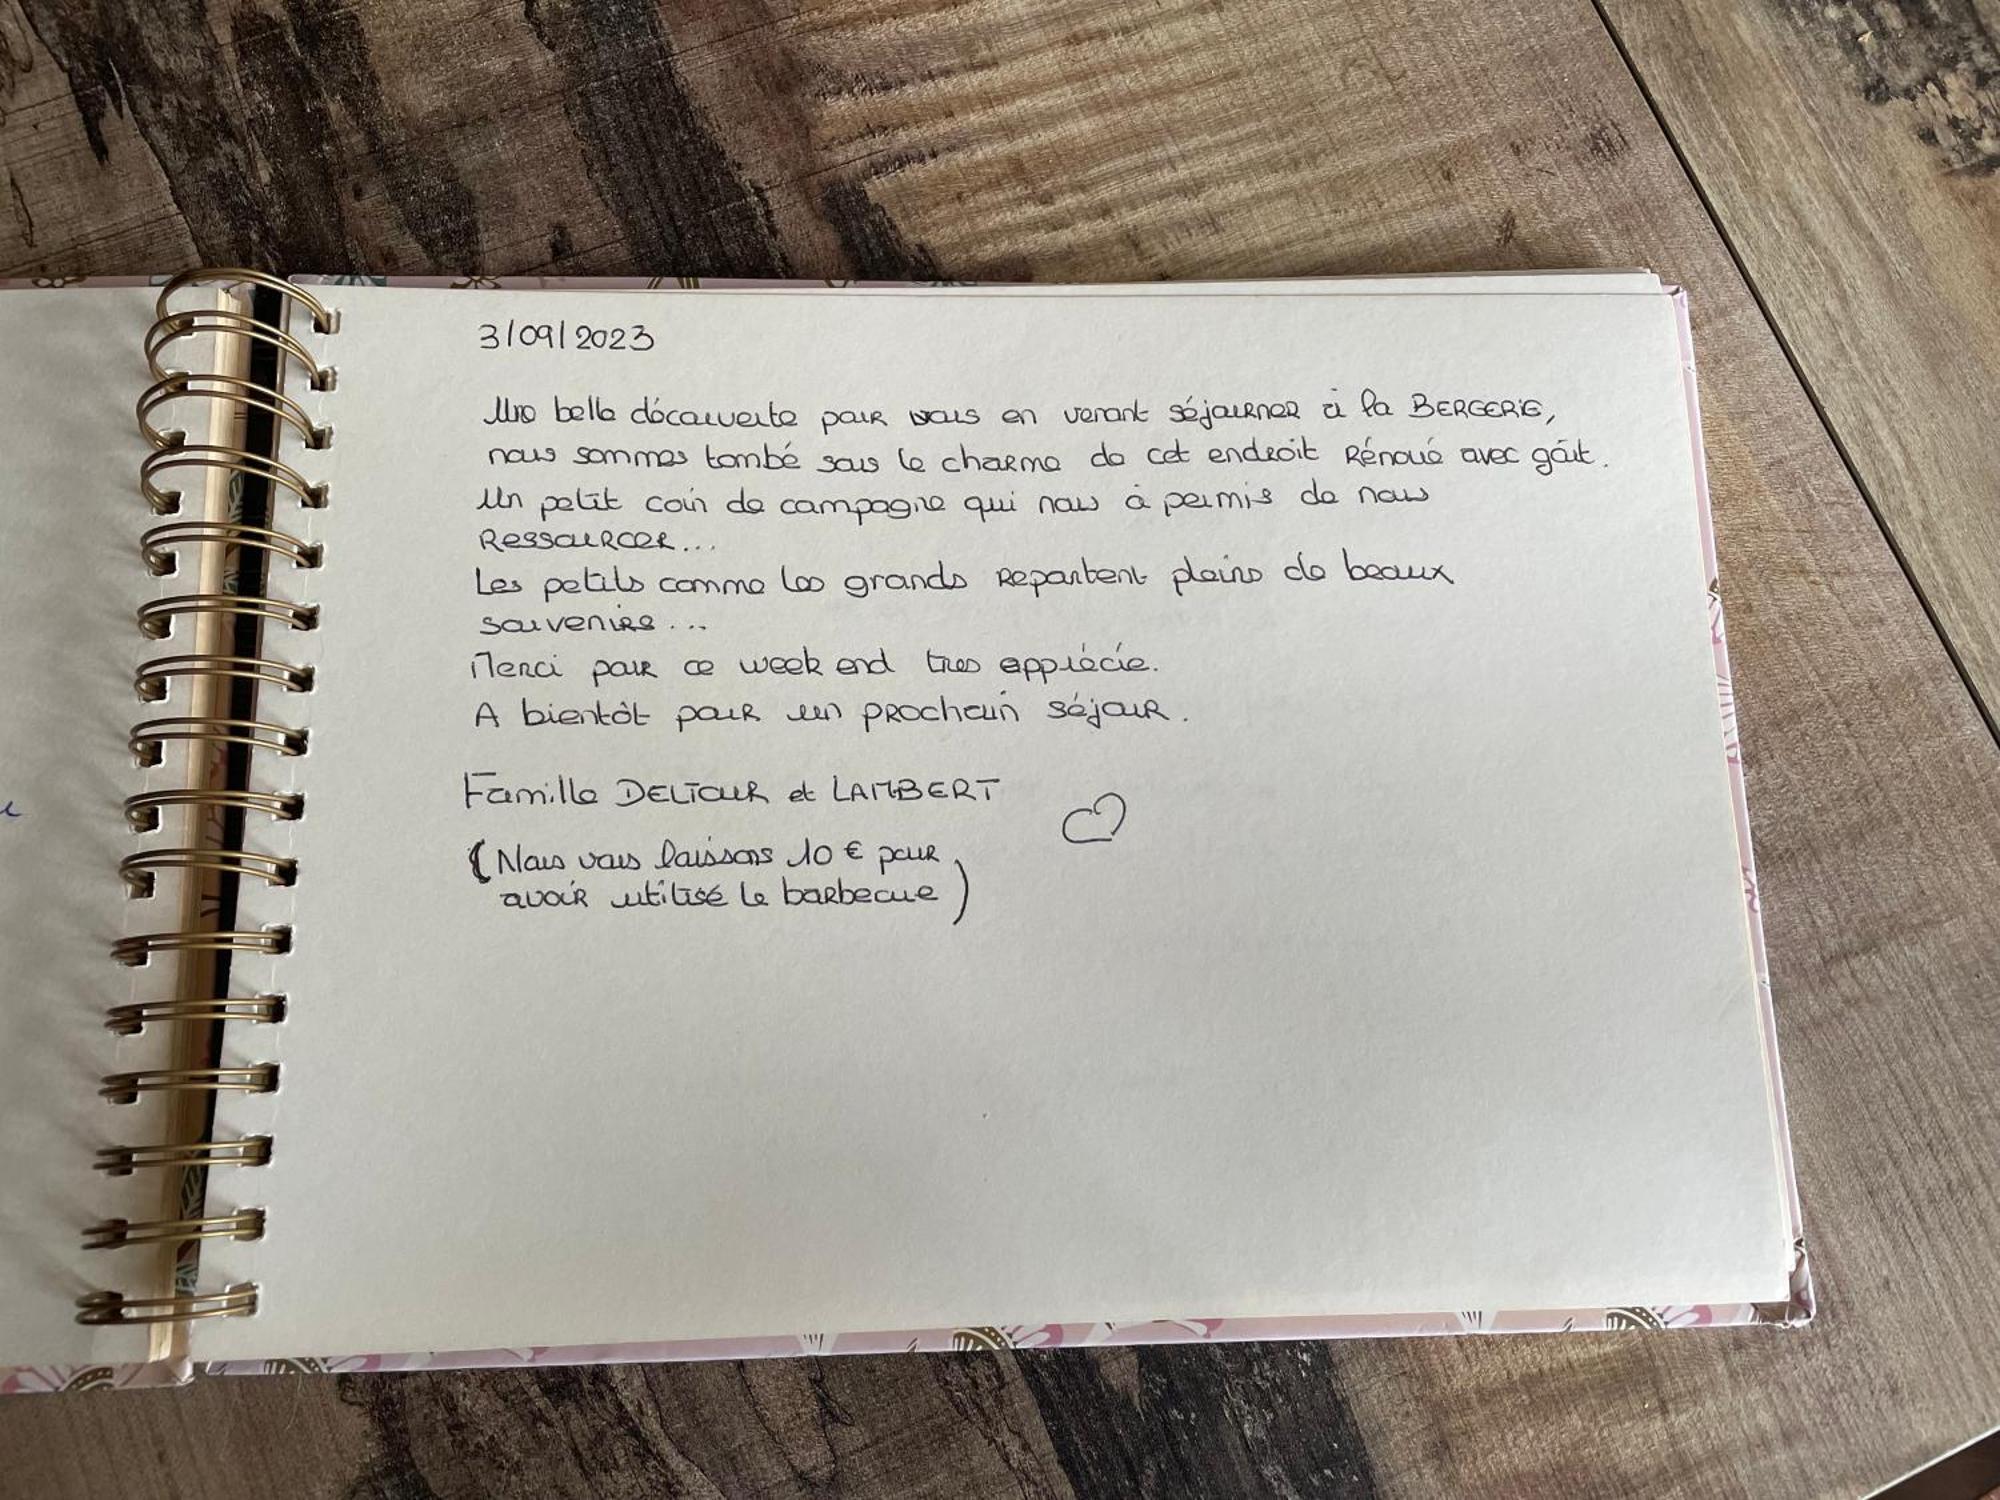 3/09/2023
Une belle découverte pour nous en venant séjourner à la BERGERIE,
nous sommes tombé sous le charme de cet endroit Rénové avec goût.
Un petit coin de campagne qui nous à permis de nous
Ressourcer...
Les petits comme les grands Repartent pleins de beaux
souvenirs...
Merci pour ce week end tres apprécie.
A bientôt pour un prochain séjour.
Famille DELTOUR et LAMBERT
(Nous vous laissons 10 € pour
avoir utilisé le barbecue)